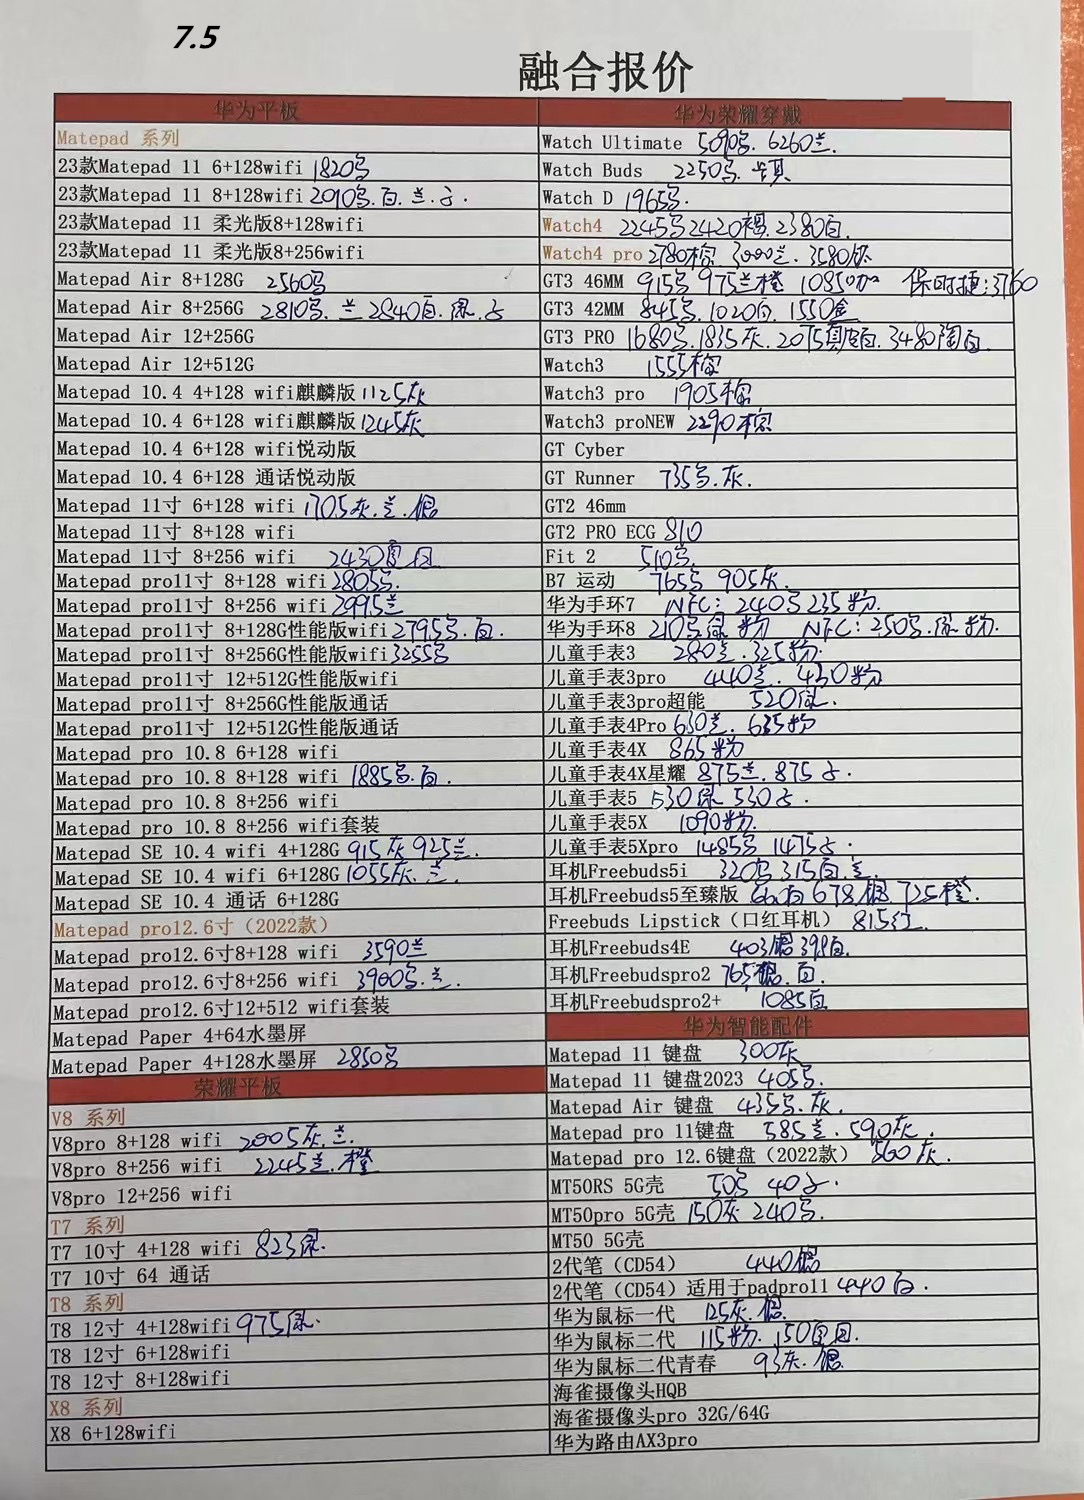 7.5
融合报价
华为平板
Matepad 系列
23款Matepad 11 6+128wifi 1820
23款Matepad 11 8+128wifi 2010 白.兰.
23款Matepad 11 柔光版8+128wifi
23款Matepad 11 柔光版8+256wifi
Matepad Air 8+128G 2560
Matepad Air 8+256G 2810 兰 2840白.绿.
Matepad Air 12+256G
Matepad Air 12+512G
Matepad 10.4 4+128 wifi麒麟版 1125灰
Matepad 10.4 6+128 wifi麒麟版 1245灰
Matepad 10.4 6+128 wifi悦动版
Matepad 10.4 6+128 通话悦动版
Matepad 11寸 6+128 wifi 1705灰.兰.
Matepad 11寸 8+128 wifi
Matepad 11寸 8+256 wifi 2430
Matepad pro11寸 8+128 wifi 2805
Matepad pro11寸 8+256 wifi 2995兰
Matepad pro11寸 8+128G性能版wifi 2795 白.
Matepad pro11寸 8+256G性能版wifi 3255
Matepad pro11寸 12+512G性能版wifi
Matepad pro11寸 8+256G性能版通话
Matepad pro11寸 12+512G性能版通话
Matepad pro 10.8 6+128 wifi
Matepad pro 10.8 8+128 wifi 1885 白.
Matepad pro 10.8 8+256 wifi
Matepad pro 10.8 8+256 wifi套装
Matepad SE 10.4 wifi 4+128G 915灰 925兰.
Matepad SE 10.4 wifi 6+128G 1055灰.兰.
Matepad SE 10.4 通话 6+128G
Matepad pro12.6寸（2022款）
Matepad pro12.6寸8+128 wifi 3590兰
Matepad pro12.6寸8+256 wifi 3900 兰.
Matepad pro12.6寸12+512 wifi套装
Matepad Paper 4+64水墨屏
Matepad Paper 4+128水墨屏 2850
荣耀平板
V8 系列
V8pro 8+128 wifi 2005灰.兰.
V8pro 8+256 wifi 2245兰.橙
V8pro 12+256 wifi
T7 系列
T7 10寸 4+128 wifi 823绿.
T7 10寸 64 通话
T8 系列
T8 12寸 4+128wifi 975绿.
T8 12寸 6+128wifi
T8 12寸 8+128wifi
X8 系列
X8 6+128wifi
华为荣耀穿戴
Watch Ultimate 5090 6260兰.
Watch Buds 2250
Watch D 1965
Watch4 2245 2420棕 2380白.
Watch4 pro 2780棕. 3000兰. 3580钛
GT3 46MM 915 975兰橙 1085 保时捷:3760
GT3 42MM 845 1020白. 1550金
GT3 PRO 1680 1835灰. 2075真皮白. 3480陶白.
Watch3 1555棕
Watch3 pro 1905棕
Watch3 proNEW 2290棕
GT Cyber
GT Runner 735 灰.
GT2 46mm
GT2 PRO ECG 810
Fit 2 510
B7 运动 765 905灰.
华为手环7 NFC: 240 235粉.
华为手环8 210 绿 粉 NFC: 250 绿 粉.
儿童手表3 280兰.325粉.
儿童手表3pro 440兰. 430粉
儿童手表3pro超能 520绿.
儿童手表4Pro 630兰. 635粉
儿童手表4X 865粉
儿童手表4X星耀 875兰. 875
儿童手表5 530绿 530
儿童手表5X 1090粉.
儿童手表5Xpro 1485 1475
耳机Freebuds5i 320 315白.兰.
耳机Freebuds5至臻版 678 725橙.
Freebuds Lipstick（口红耳机） 815红.
耳机Freebuds4E 403 398白.
耳机Freebudspro2 765 白.
耳机Freebudspro2+ 1085白
华为智能配件
Matepad 11 键盘 300灰
Matepad 11 键盘2023 405
Matepad Air 键盘 435 灰.
Matepad pro 11键盘 585兰. 590灰.
Matepad pro 12.6键盘（2022款） 560灰.
MT50RS 5G壳 40
MT50pro 5G壳 150灰 240
MT50 5G壳
2代笔（CD54） 440
2代笔（CD54）适用于padpro11 440白.
华为鼠标一代 125灰.
华为鼠标二代 115粉. 150
华为鼠标二代青春 93灰.
海雀摄像头HQB
海雀摄像头pro 32G/64G
华为路由AX3pro